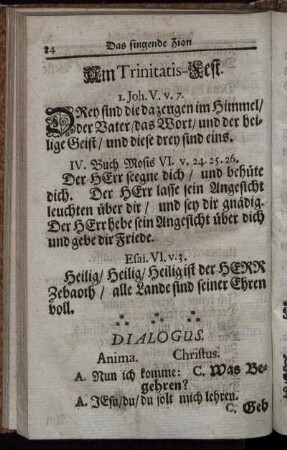 24 Das singende Zion
Am Trinitatis-Fest.
1. Joh. V. v. 7.
DRey sind die da zeugen im Himmel/
der Vater/ das Wort/ und der hei-
lige Geist/ und diese drey sind eins.
IV. Buch Mosis VI. v. 24. 25. 26.
Der HErr seegne dich/ und behüte
dich. Der HErr lasse sein Angesicht
leuchten über dir/ und sey dir gnädig.
Der HErr hebe sein Angesicht über dich
und gebe dir Friede.
Esai. VI. v. 3.
Heilig/ Heilig/ Heilig ist der HERR
Zebaoth/ alle Lande sind seiner Ehren
voll.
DIALOGUS.
Anima. Christus.
A. Nun ich komme: C. Was Be-
gehren?
A. JEsu/ du/ du solt mich lehren.
C. Geh